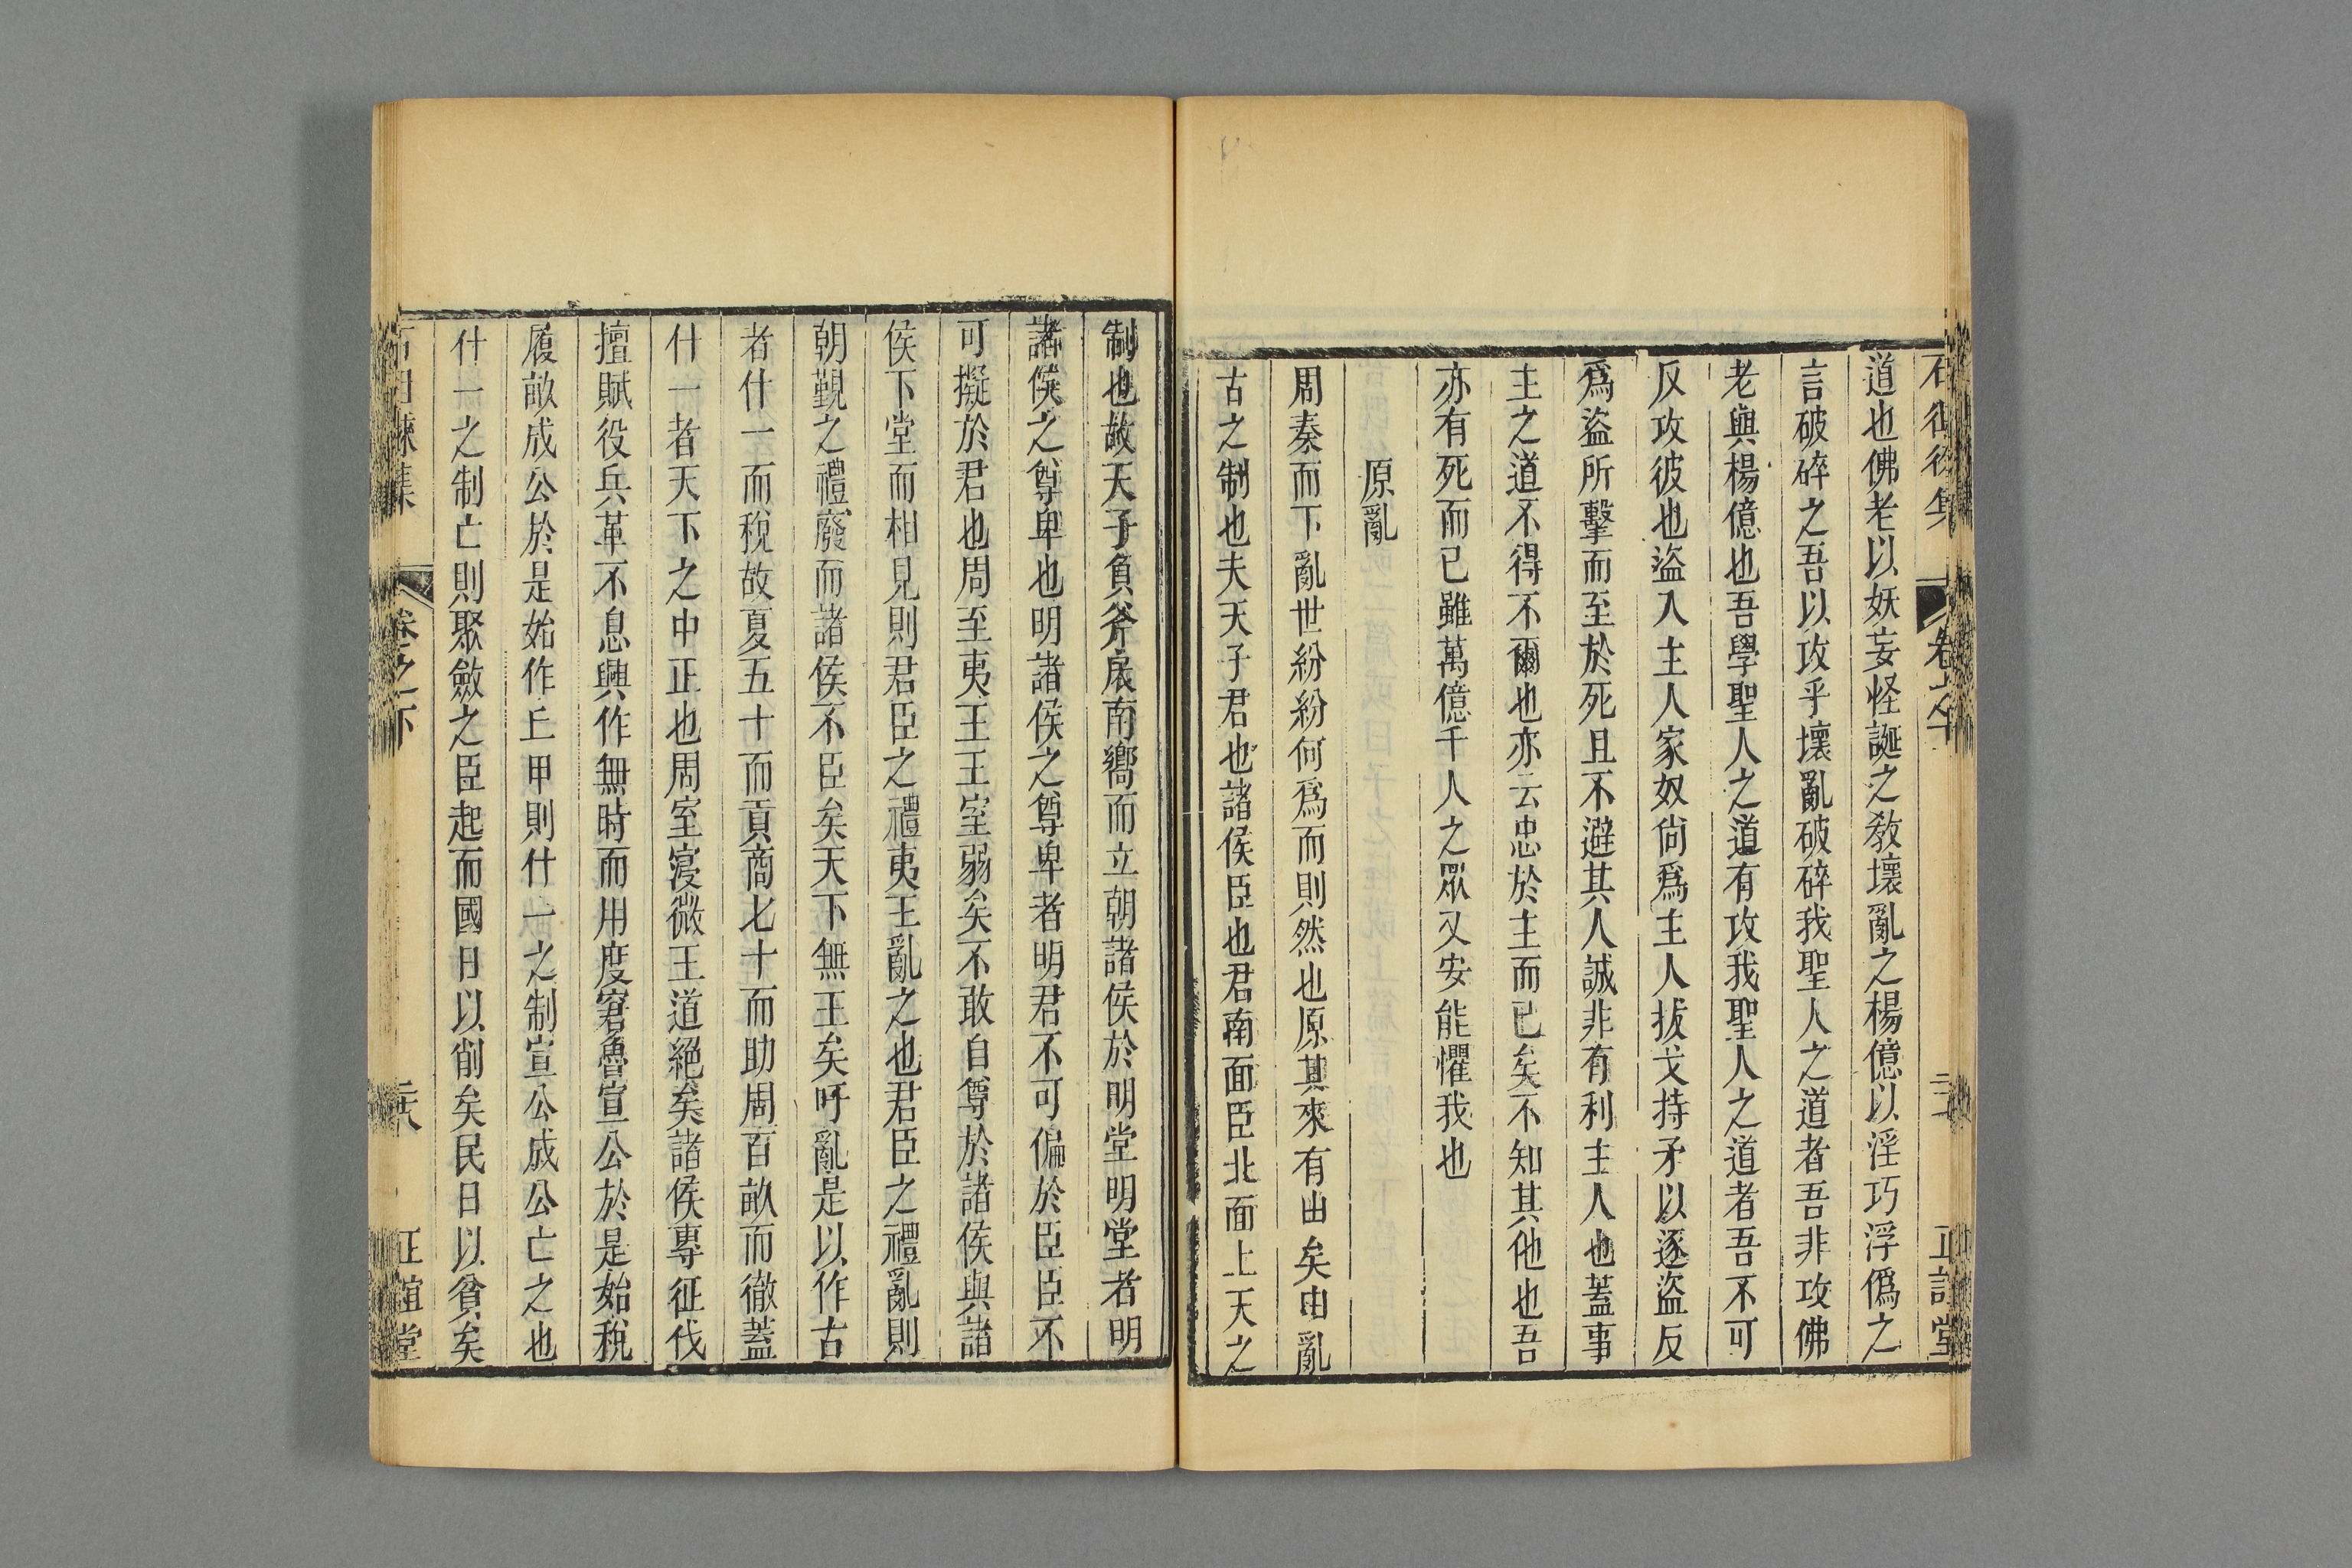 道也佛老以妖妄怪誕之教壞亂之楊億以淫巧浮僞之
言破碎之吾以攻乎壞亂破碎我聖人之道者吾非攻佛
老與楊億也吾學聖人之道有攻我聖人之道者吾不可
反攻彼也盜入主人家奴尚爲主人拔戈持矛以逐盜反
爲盜所擊而至於死且不避其人誠非有利主人也蓋事
主之道不得不爾也亦云忠於主而已矣不知其他也吾
亦有死而已雖萬億千人之眾又安能懼我也
原亂
周秦而下亂世紛紛何爲而則然也原其來有由矣由亂
古之制也夫天子君也諸侯臣也君南面臣北面上天之
制也故天子負斧扆南嚮而立朝諸侯於明堂明堂者明
諸侯之尊卑也明諸侯之尊卑者明君不可偪於臣臣不
可擬於君也周至夷王王室弱矣不敢自尊於諸侯與諸
侯下堂而相見則君臣之禮夷王亂之也君臣之禮亂則
朝覲之禮廢而諸侯不臣矣天下無王矣吁亂是以作古
者什一而稅故夏五十而貢商七十而助周百畝而徹蓋
什一者天下之中正也周室寖微王道絕矣諸侯專征伐
擅賦役兵革不息興作無時而用度窘魯宣公於是始稅
履畝成公於是始作丘甲則什一之制宣公成公亡之也
什一之制亡則聚斂之臣起而國日以削矣民日以貧矣
卷之下